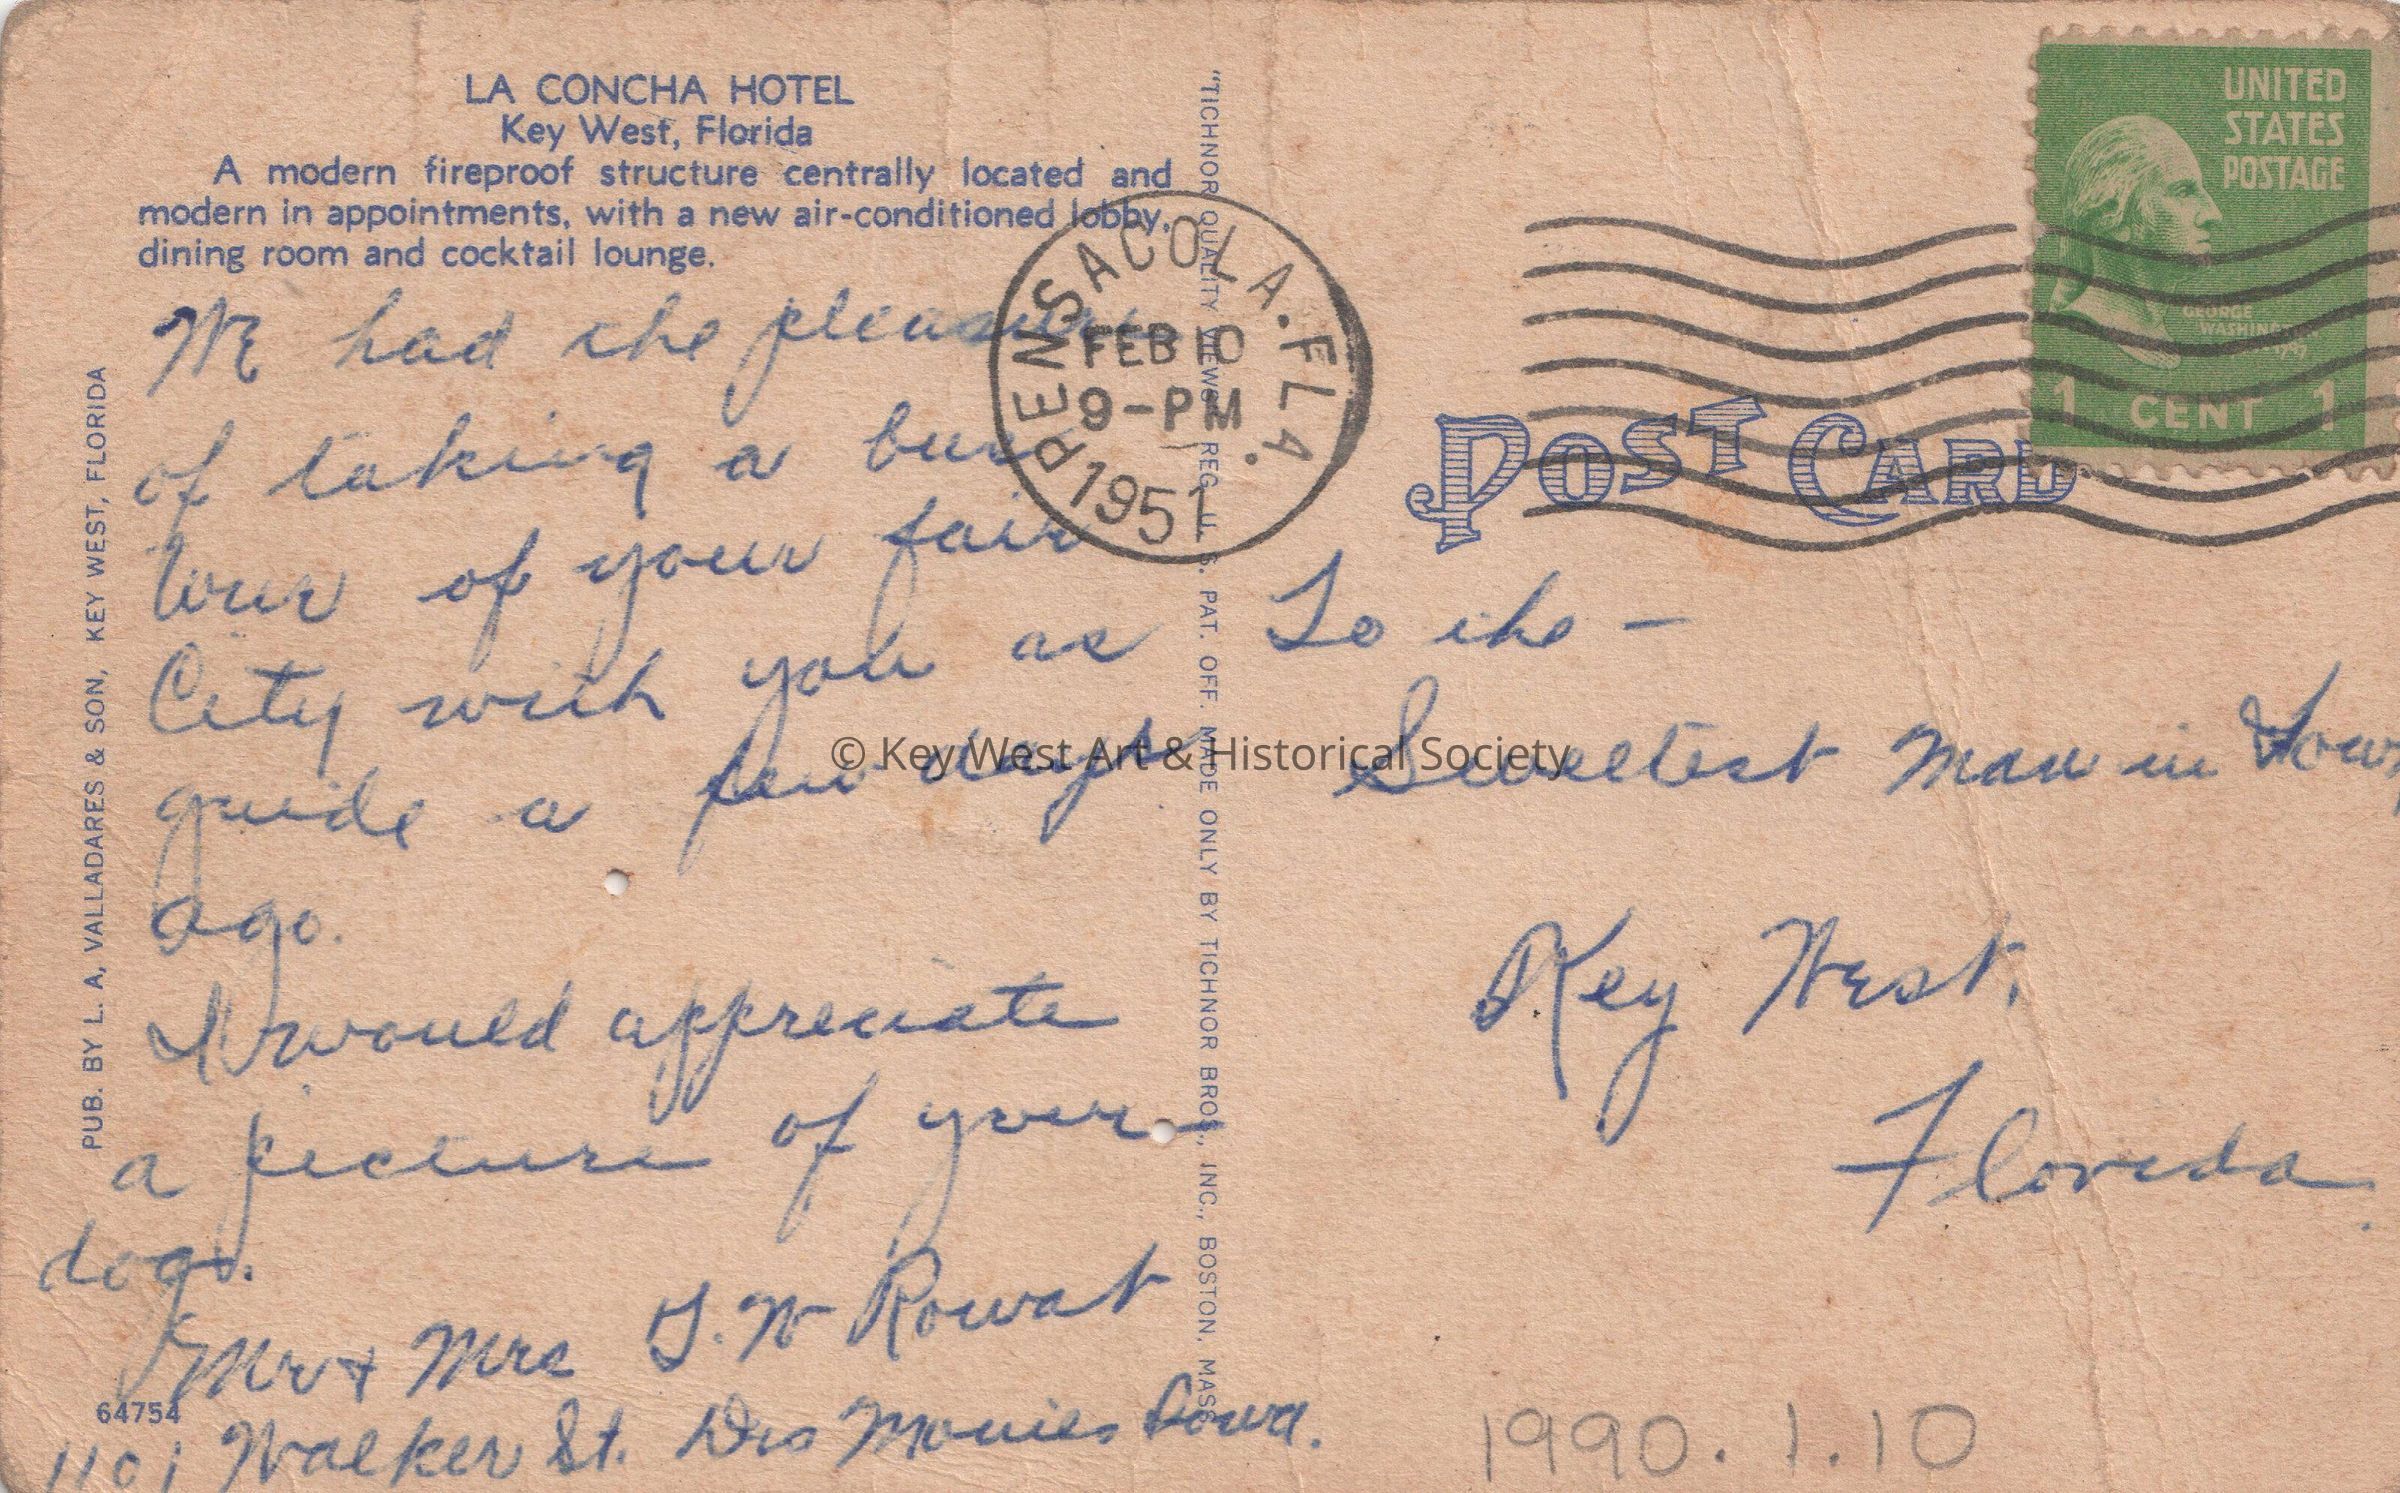 LA CONCHA HOTEL
Key West, Florida
A modern fireproof structure centrally located and
modern in appointments, with a new air-conditioned lobby,
dining room and cocktail lounge.
We had the pleasure
of taking a bus
tour of your fair
City with you as
guide a few days
ago.
I would appreciate
a picture of your
dog.
Mr & Mrs J. W Rowat
1101 Walker St. Des Monies Iowa.
64754
PUB. BY L. A. VALLADARES & SON, KEY WEST, FLORIDA
"TICHNOR QUALITY VIEWS" REG. U. S. PAT. OFF. MADE ONLY BY TICHNOR BROS., INC., BOSTON, MASS.
PENSACOLA. FLA.
FEB 10
9-PM
1951
UNITED
STATES
POSTAGE
GEORGE
WASHINGTON
1 CENT 1
POST CARD
To the -
Sweetest Man in Town
Key West,
Florida.
1990.1.10
© Key West Art & Historical Society